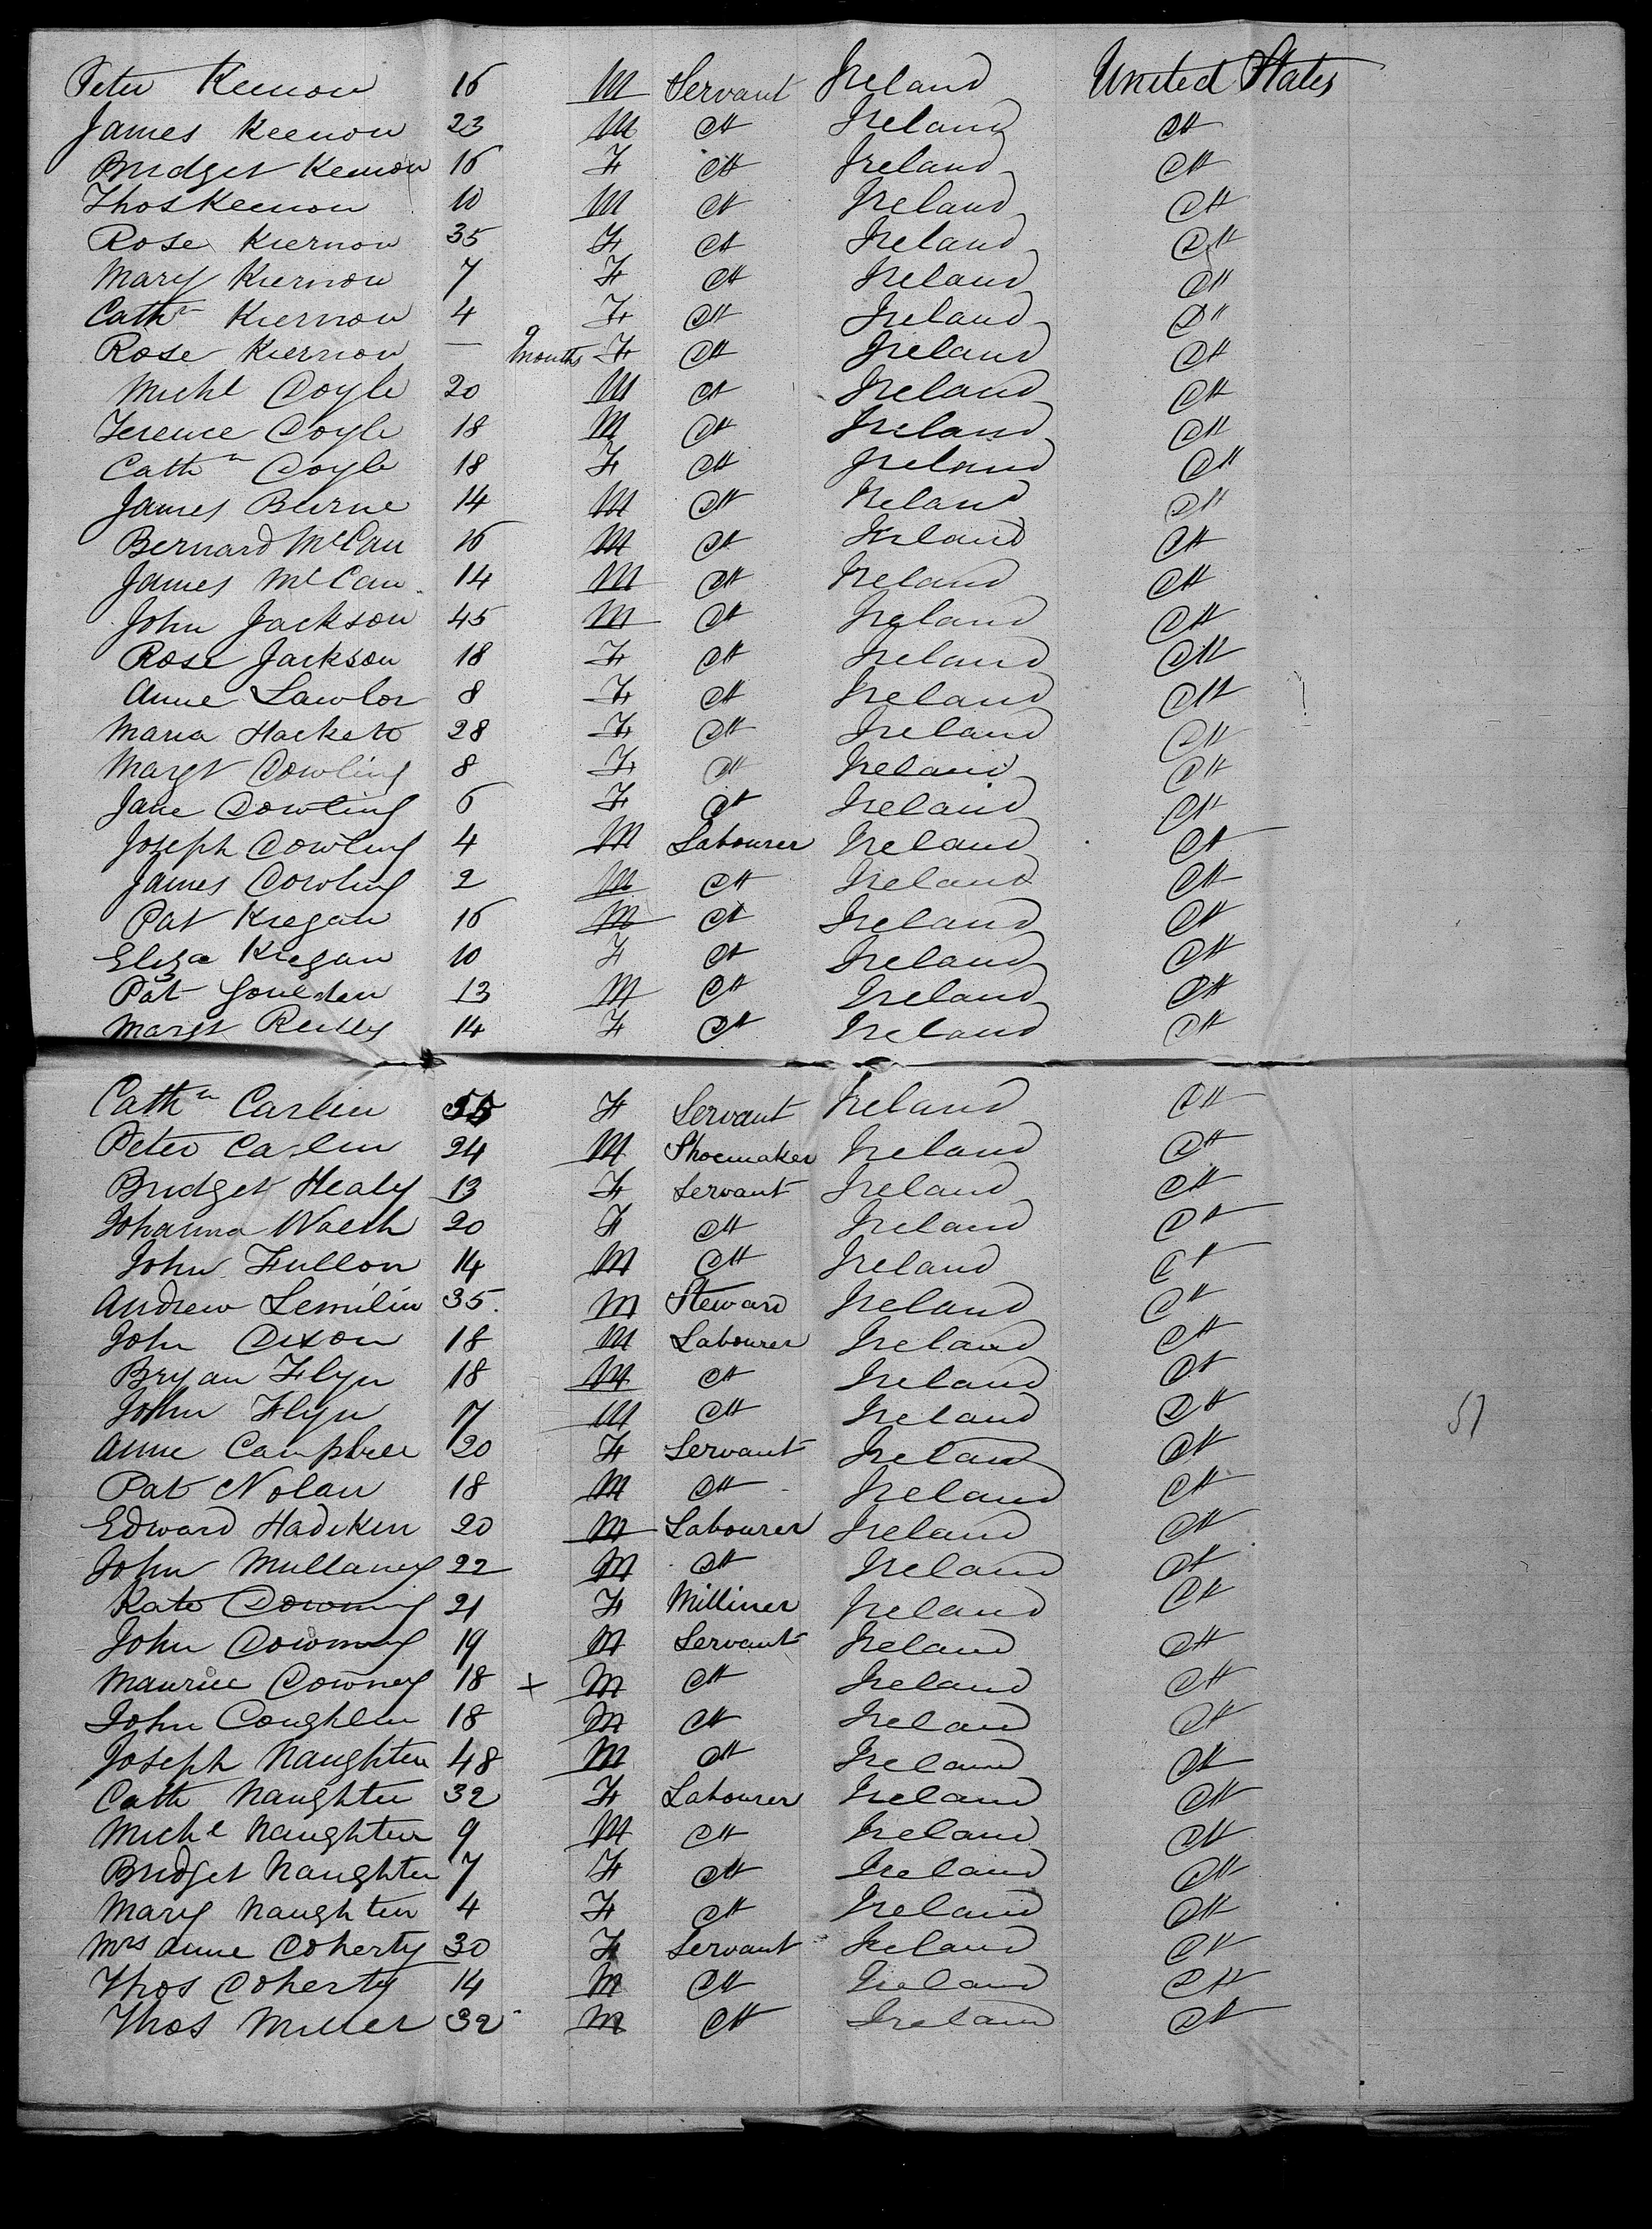 Peter Keenon 16 M Servant Ireland United States
James Keenon 23 M do Ireland do
Bridget Keenon 16 F do Ireland do
Thos Keenon 10 M do Ireland do
Rose Kiernon 35 F do Ireland do
Mary Kiernon 7 F do Ireland do
Cathn Kiernon 4 F do Ireland do
Rose Kiernon — 9 months F do Ireland do
Michl Doyle 20 M do Ireland do
Terence Doyle 18 M do Ireland do
Cathn Doyle 18 F do Ireland do
James Burne 14 M do Ireland do
Bernard McCan 16 M do Ireland do
James McCan 14 M do Ireland do
John Jackson 45 M do Ireland do
Rose Jackson 18 F do Ireland do
Anne Lawlor 8 F do Ireland do
Maria Hackett 28 F do Ireland do
Margt Dowling 8 F do Ireland do
Jane Dowling 6 F do Ireland do
Joseph Dowling 4 M Labourer Ireland do
James Dowling 2 M do Ireland do
Pat Kiegan 16 M do Ireland do
Eliza Kiegan 10 F do Ireland do
Pat Goulden 13 M do Ireland do
Margt Reilly 14 F do Ireland do
Cathn Carlin F Servant Ireland do
Peter Carlin 24 M Shoemaker Ireland do
Bridget Healy 13 F Servant Ireland do
Johanna Walsh 20 F do Ireland do
John Fullon 14 M do Ireland do
Andrew Lemilin 35 M Steward Ireland do
John Dixon 18 M Labourer Ireland do
Bryan Flyn 18 M do Ireland do
John Flyn 17 M do Ireland do
Anne Campbell 20 F Servant Ireland do
Pat Nolan 18 M do Ireland do
Edward Hadiken 20 M Labourer Ireland do
John Mullaney 22 M do Ireland do
Kate Downing 21 F Milliner Ireland do
John Downing 19 M Servant Ireland do
Maurice Downey 18 + M do Ireland do
John Coughlin 18 M do Ireland do
Joseph Naughten 48 M do Ireland do
Cath Naughten 32 F Labourer Ireland do
Michl Naughten 9 M do Ireland do
Bridget Naughten 7 F do Ireland do
Mary Naughten 4 F do Ireland do
Mrs Anne Doherty 30 F Servant Ireland do
Thos Doherty 14 M do Ireland do
Thos Miller 32 M do Ireland do
51